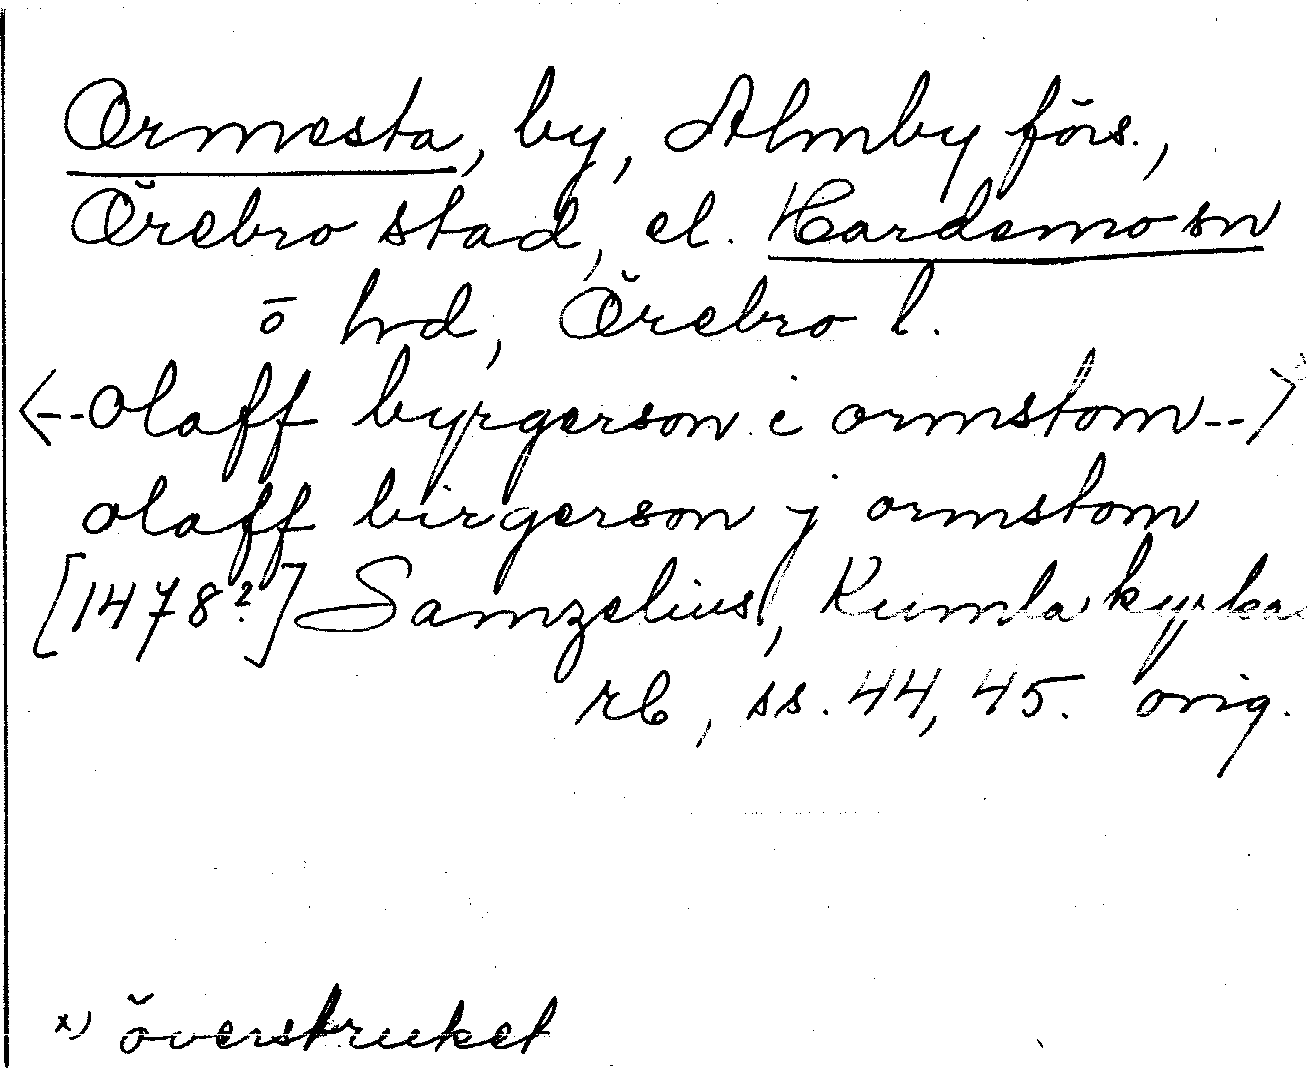 Ormesta, by, Almby förs.,
Örebro stad, el. Hardemo sn
o hd, Örebro l.
<--olaff byrgerson i ormstom-->
olaff birgerson j ormstom
[1478?] Samzelius, Kumla kyrkas
rb, ss. 44, 45. orig.
x) överstruket